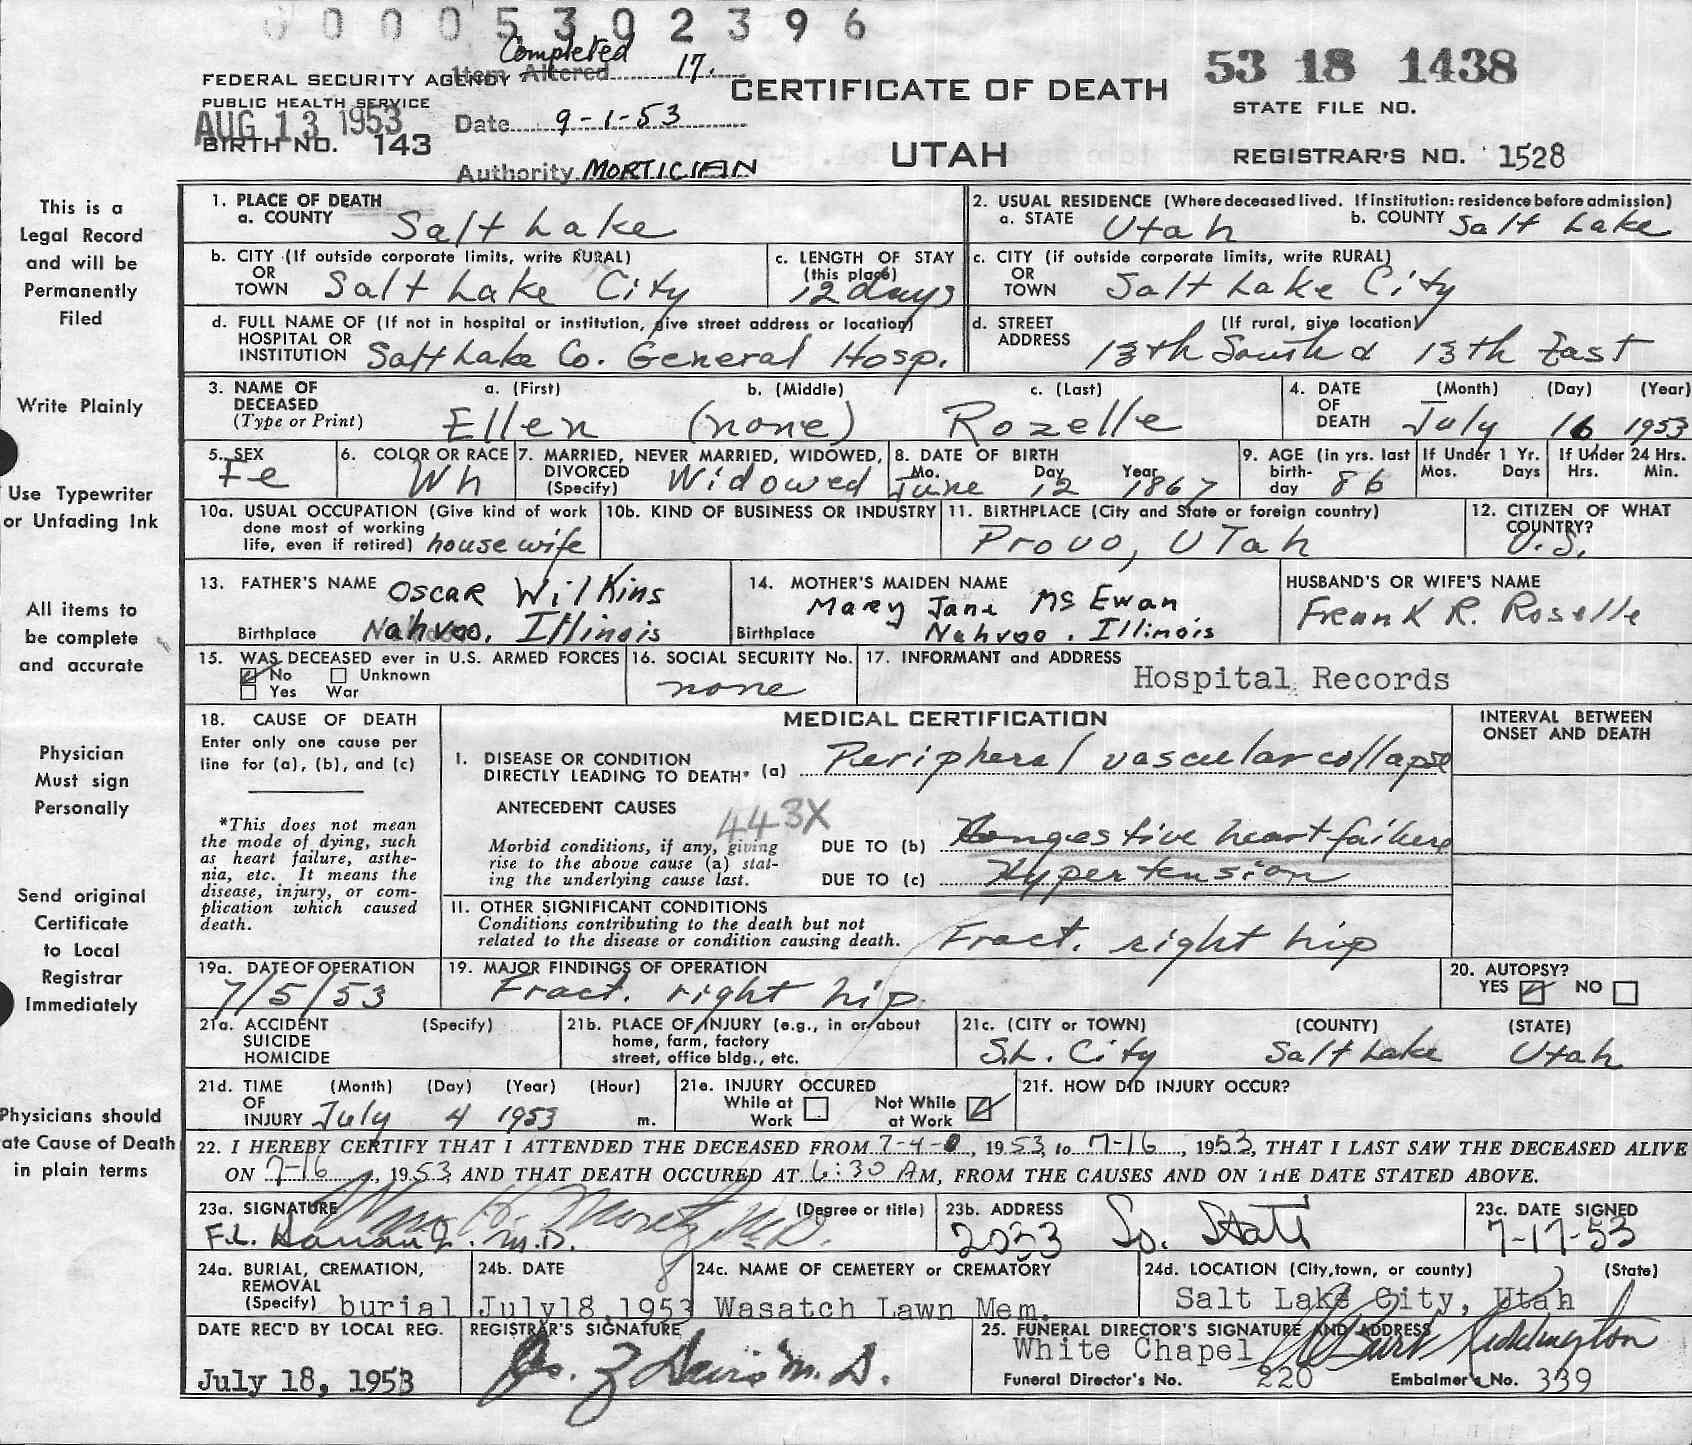 0 0 0 0 5 3 0 2 3 9 6
Completed
Item Altered 17.
FEDERAL SECURITY AGENCY
PUBLIC HEALTH SERVICE
AUG 13 1953
BIRTH NO. 143
Date 9-1-53
Authority MORTICIAN
CERTIFICATE OF DEATH
UTAH
53 18 1438
STATE FILE NO.
REGISTRAR'S NO. 1528
This is a
Legal Record
and will be
Permanently
Filed
Write Plainly
Use Typewriter
or Unfading Ink
All items to
be complete
and accurate
Physician
Must sign
Personally
Send original
Certificate
to Local
Registrar
Immediately
Physicians should
ate Cause of Death
in plain terms
1. PLACE OF DEATH
a. COUNTY Salt Lake
2. USUAL RESIDENCE (Where deceased lived. If institution: residence before admission)
a. STATE Utah b. COUNTY Salt Lake
b. CITY (If outside corporate limits, write RURAL)
OR
TOWN Salt Lake City
c. LENGTH OF STAY
(this place)
12 days
c. CITY (if outside corporate limits, write RURAL)
OR
TOWN Salt Lake City
d. FULL NAME OF (If not in hospital or institution, give street address or location)
HOSPITAL OR
INSTITUTION Salt Lake Co. General Hosp.
d. STREET (If rural, give location)
ADDRESS 13th South & 13th East
3. NAME OF a. (First) b. (Middle) c. (Last)
DECEASED
(Type or Print) Ellen (none) Rozelle
4. DATE (Month) (Day) (Year)
OF
DEATH July 16 1953
5. SEX
Fe
6. COLOR OR RACE
Wh
7. MARRIED, NEVER MARRIED, WIDOWED,
DIVORCED
(Specify) Widowed
8. DATE OF BIRTH
Mo. Day Year
June 12 1867
9. AGE (in yrs. last
birth-
day 86
If Under 1 Yr.
Mos. Days
If Under 24 Hrs.
Hrs. Min.
10a. USUAL OCCUPATION (Give kind of work
done most of working
life, even if retired) housewife
10b. KIND OF BUSINESS OR INDUSTRY
11. BIRTHPLACE (City and State or foreign country)
Provo, Utah
12. CITIZEN OF WHAT
COUNTRY?
U.S.
13. FATHER'S NAME Oscar Wilkins
Birthplace Nahvoo, Illinois
14. MOTHER'S MAIDEN NAME
Mary Jane Mc Ewan
Birthplace Nahvoo, Illinois
HUSBAND'S OR WIFE'S NAME
Frank R. Roselle
15. WAS DECEASED ever in U.S. ARMED FORCES
No Unknown
Yes War
16. SOCIAL SECURITY No.
none
17. INFORMANT and ADDRESS
Hospital Records
18. CAUSE OF DEATH
Enter only one cause per
line for (a), (b), and (c)
*This does not mean
the mode of dying, such
as heart failure, asthe-
nia, etc. It means the
disease, injury, or com-
plication which caused
death.
MEDICAL CERTIFICATION
INTERVAL BETWEEN
ONSET AND DEATH
I. DISEASE OR CONDITION
DIRECTLY LEADING TO DEATH* (a) Peripheral vascular collapse
ANTECEDENT CAUSES
443X
Morbid conditions, if any, giving
rise to the above cause (a) stat-
ing the underlying cause last.
DUE TO (b) Congestive heart failure
DUE TO (c) Hypertension
II. OTHER SIGNIFICANT CONDITIONS
Conditions contributing to the death but not
related to the disease or condition causing death. Fract. right hip
19a. DATE OF OPERATION
7/5/53
19. MAJOR FINDINGS OF OPERATION
Fract. right hip.
20. AUTOPSY?
YES NO
21a. ACCIDENT (Specify)
SUICIDE
HOMICIDE
21b. PLACE OF INJURY (e.g., in or about
home, farm, factory
street, office bldg., etc.
21c. (CITY or TOWN) (COUNTY) (STATE)
S.L. City Salt Lake Utah
21d. TIME (Month) (Day) (Year) (Hour)
OF
INJURY July 4 1953 m.
21e. INJURY OCCURED
While at Not While
Work at Work
21f. HOW DID INJURY OCCUR?
22. I HEREBY CERTIFY THAT I ATTENDED THE DECEASED FROM 7-4-, 1953, to 7-16, 1953, THAT I LAST SAW THE DECEASED ALIVE
ON 7-16, 1953, AND THAT DEATH OCCURED AT 6:30 AM, FROM THE CAUSES AND ON THE DATE STATED ABOVE.
23a. SIGNATURE (Degree or title)
Wm. H. Moretz M.D.
F.L. M.D.
23b. ADDRESS
2033 So. State
23c. DATE SIGNED
7-17-53
24a. BURIAL, CREMATION,
REMOVAL
(Specify) burial
24b. DATE
July 18, 1953
24c. NAME OF CEMETERY or CREMATORY
Wasatch Lawn Mem.
24d. LOCATION (City, town, or county) (State)
Salt Lake City, Utah
DATE REC'D BY LOCAL REG.
July 18, 1953
REGISTRAR'S SIGNATURE
M.D.
25. FUNERAL DIRECTOR'S SIGNATURE AND ADDRESS
White Chapel
Funeral Director's No. 220 Embalmer's No. 339